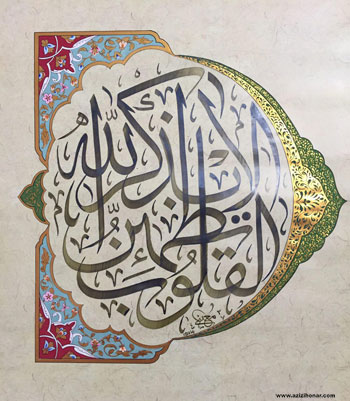 ألا بذكر الله
تطمئن
القلوب
www.azizihonar.com